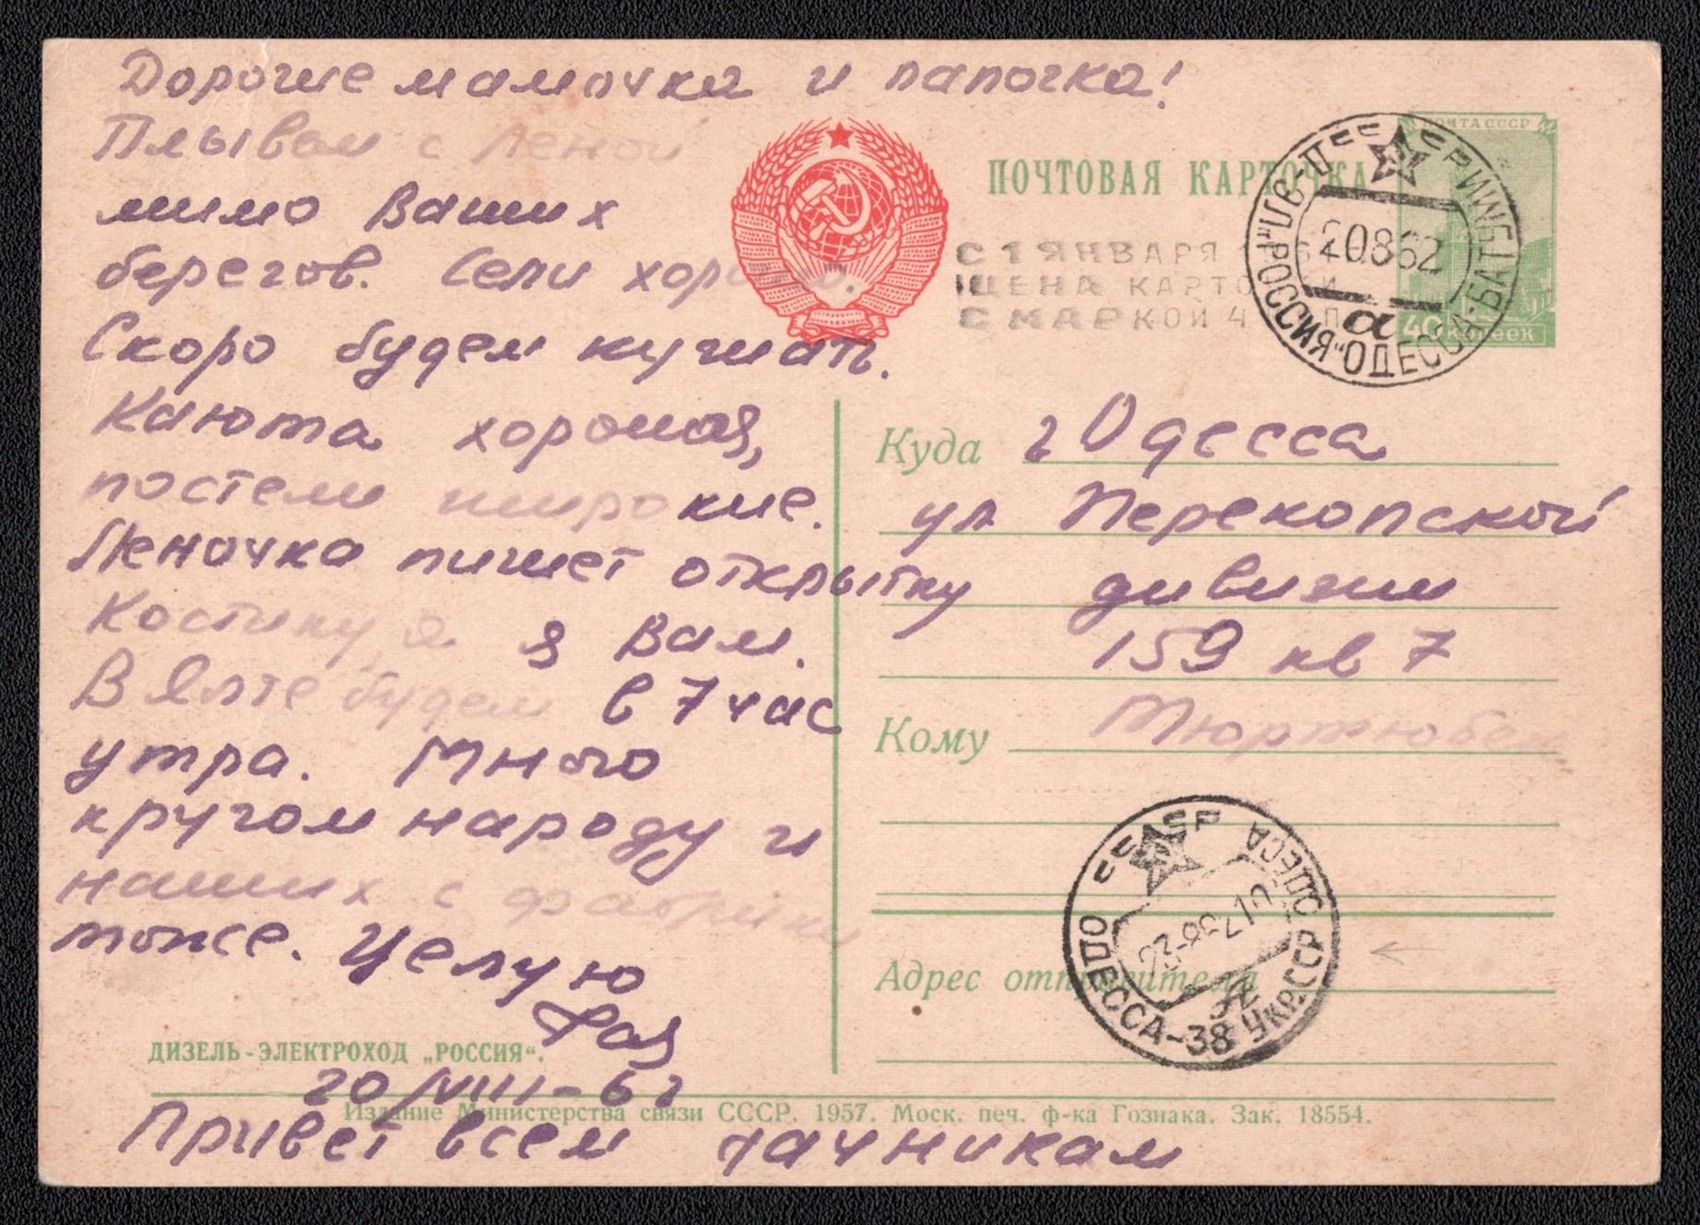 Дорогие мамочка и папочка!
Плывем с Леной
мимо Ваших
берегов. Сели хорошо.
Скоро будем кушать.
Каюта хорошая,
постели широкие.
Леночка пишет открытку
Костику, а я Вам.
В Ялте будем в 7 час
утра. Много
кругом народу и
наших с фабрики
тоже. Целую
Фая
ДИЗЕЛЬ-ЭЛЕКТРОХОД „РОССИЯ“.
20/VIII-62
Издание Министерства связи СССР. 1957. Моск. печ. ф-ка Гознака. Зак. 18554.
Привет всем дачникам
ПОЧТА СССР
ПОЧТОВАЯ КАРТОЧКА
40 копеек
С 1 ЯНВАРЯ
ЦЕНА КАРТОЧКИ
С МАРКОЙ 4
200862
а
„РОССИЯ“ ОДЕССА-БАТ
Куда г Одесса
ул Перекопской
дивизии
159 кв 7
Кому
Адрес отправителя
ОДЕССА-38 УКР.ССР